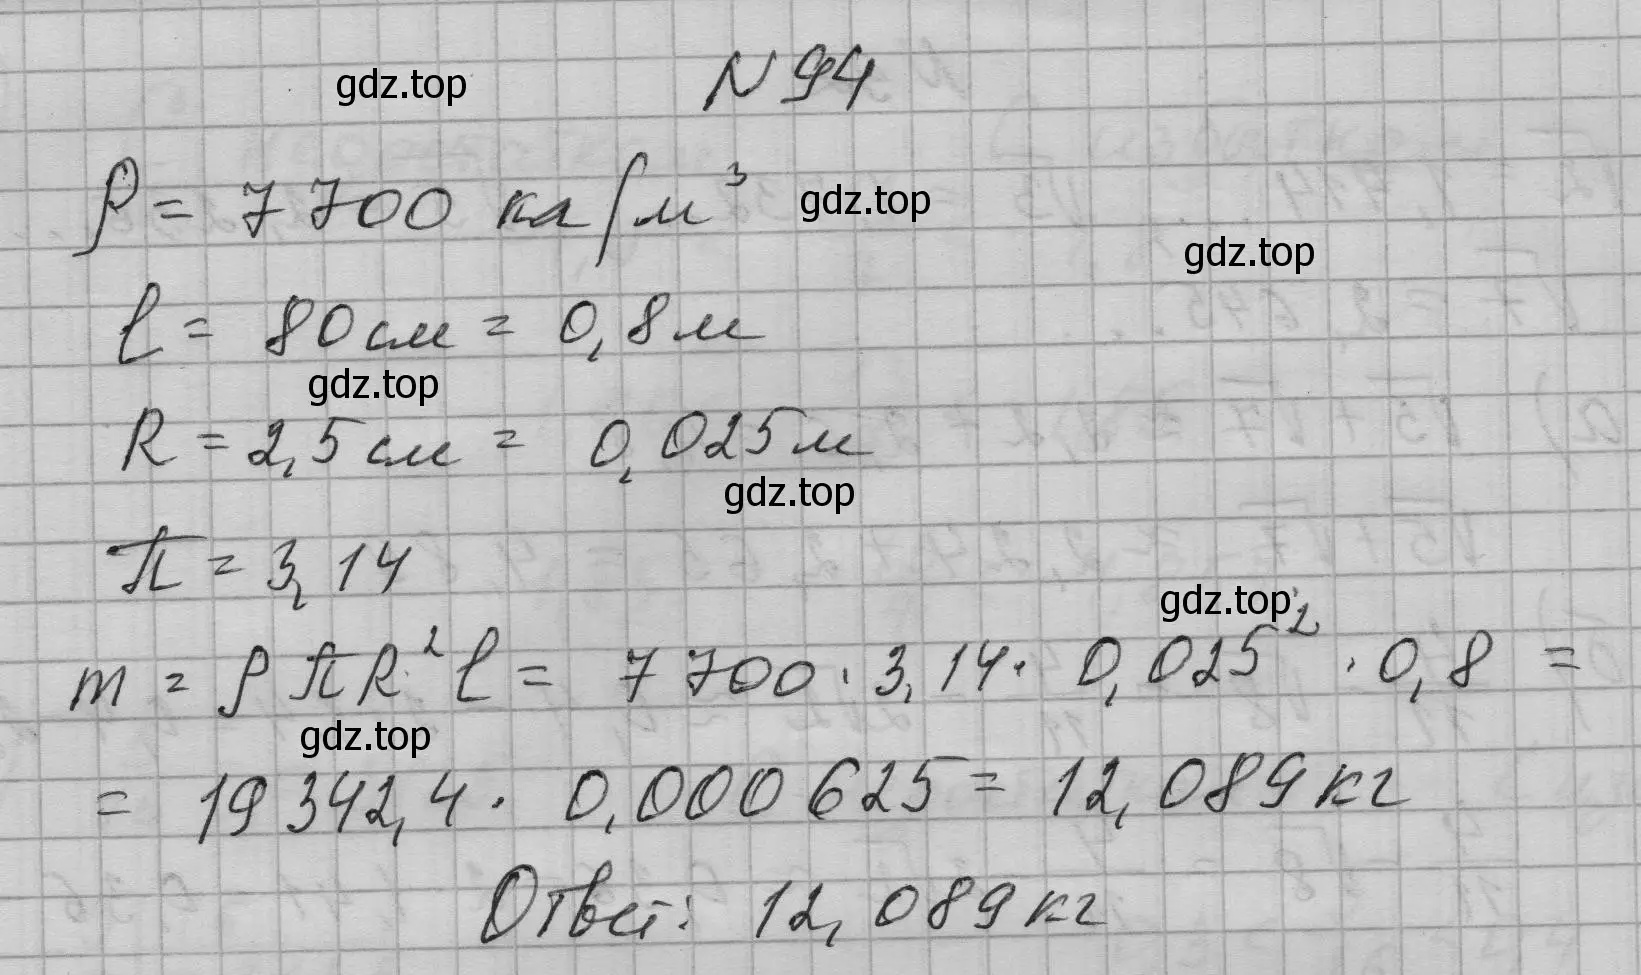 gdz.top
N 94
ρ = 7700 кг/м³ gdz.top
gdz.top
l = 80 см = 0,8 м
gdz.top
R = 2,5 см = 0,025 м
gdz.top
π = 3,14
gdz.top
m = ρπR²l = 7700 · 3,14 · 0,025² · 0,8 =
gdz.top
= 19342,4 · 0,000625 = 12,089 кг
Ответ: 12,089 кг